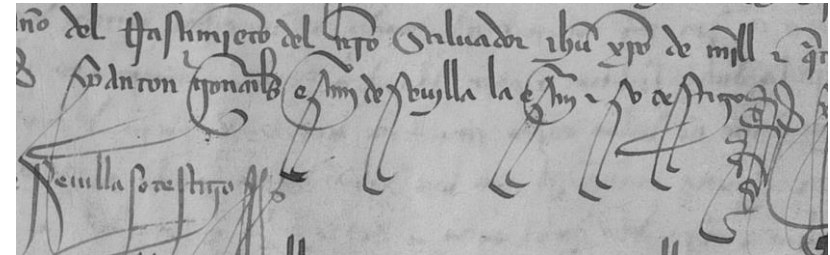 ño del nasçimiento del nro Saluador ihu xpo de mill e qi
anton gonçales escriuano de seuilla la escreui e so testigo
Seuilla so testigo